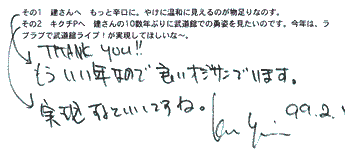 その1　建さんへ　もっと辛口に。やけに温和に見えるのが物足りなのす。
その2　キクチPへ　建さんの10数年ぶりに武道館での勇姿を見たいのです。今年は、ラ
ブラブで武道館ライブ！が実現してほしいな～。
THANK YOU!!
もういい年なので良いオジサンでいます。
実現するといいですね。
99.2.